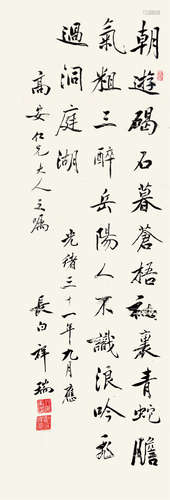 朝遊碣石暮蒼梧袖裏青蛇膽
氣粗三醉岳陽人不識浪吟飛
過洞庭湖
光緒三十一年九月應
高安仁兄大人之屬
長白祥瑞